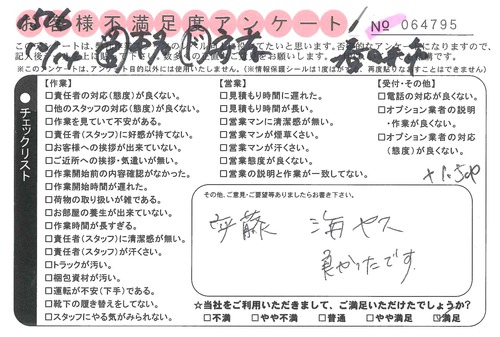 お客様不満足度アンケート
No 064795
※このアンケートは、アンケート目的以外には使用いたしません。(※情報保護シールは1度はがすと、再度貼りなおすことはできません)
チェックリスト
【作業】
□責任者の対応(態度)が良くない。
□他のスタッフの対応(態度)が良くない。
□作業を見ていて不安がある。
□責任者(スタッフ)に好感が持てない。
□お客様への挨拶が出来ていない。
□ご近所への挨拶・気遣いが無い。
□作業開始前の内容確認がなかった。
□作業開始時間が遅れた。
□荷物の取り扱いが雑である。
□お部屋の養生が出来ていない。
□作業時間が長すぎる。
□責任者(スタッフ)に清潔感が無い。
□責任者(スタッフ)が汗くさい。
□トラックが汚い。
□梱包資材が汚い。
□運転が不安(下手)である。
□靴下の履き替えをしてない。
□スタッフにやる気がみられない。
【営業】
□見積もり時間に遅れた。
□見積もり時間が長い。
□営業マンに清潔感が無い。
□営業マンが煙草くさい。
□営業マンが汗くさい。
□営業態度が良くない。
□営業の説明と作業が一致してない。
【受付・その他】
□電話の対応が良くない。
□オプション業者の説明
・作業が良くない。
□オプション業者の対応
(態度)が良くない。
その他、ご意見・ご要望等ありましたらお書き下さい。
齊藤 海ヤス
良かったです
☆当社をご利用いただきまして、ご満足いただけたでしょうか?
□不満 □やや不満 □普通 □やや満足 ☑満足